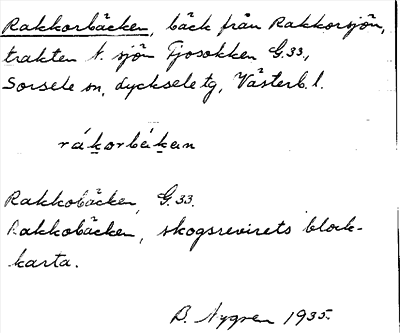 Rakkorbäcken, bäck från Rakkorsjön,
trakten N. sjön Gosokken G.33.,
Sorsele sn, Lycksele tg, Västerb. l.
rákorbákan
Rakkobäcken, G.33.
Rakkobäcken, skogsrevirets block-
karta.
B. Nygren 1935.